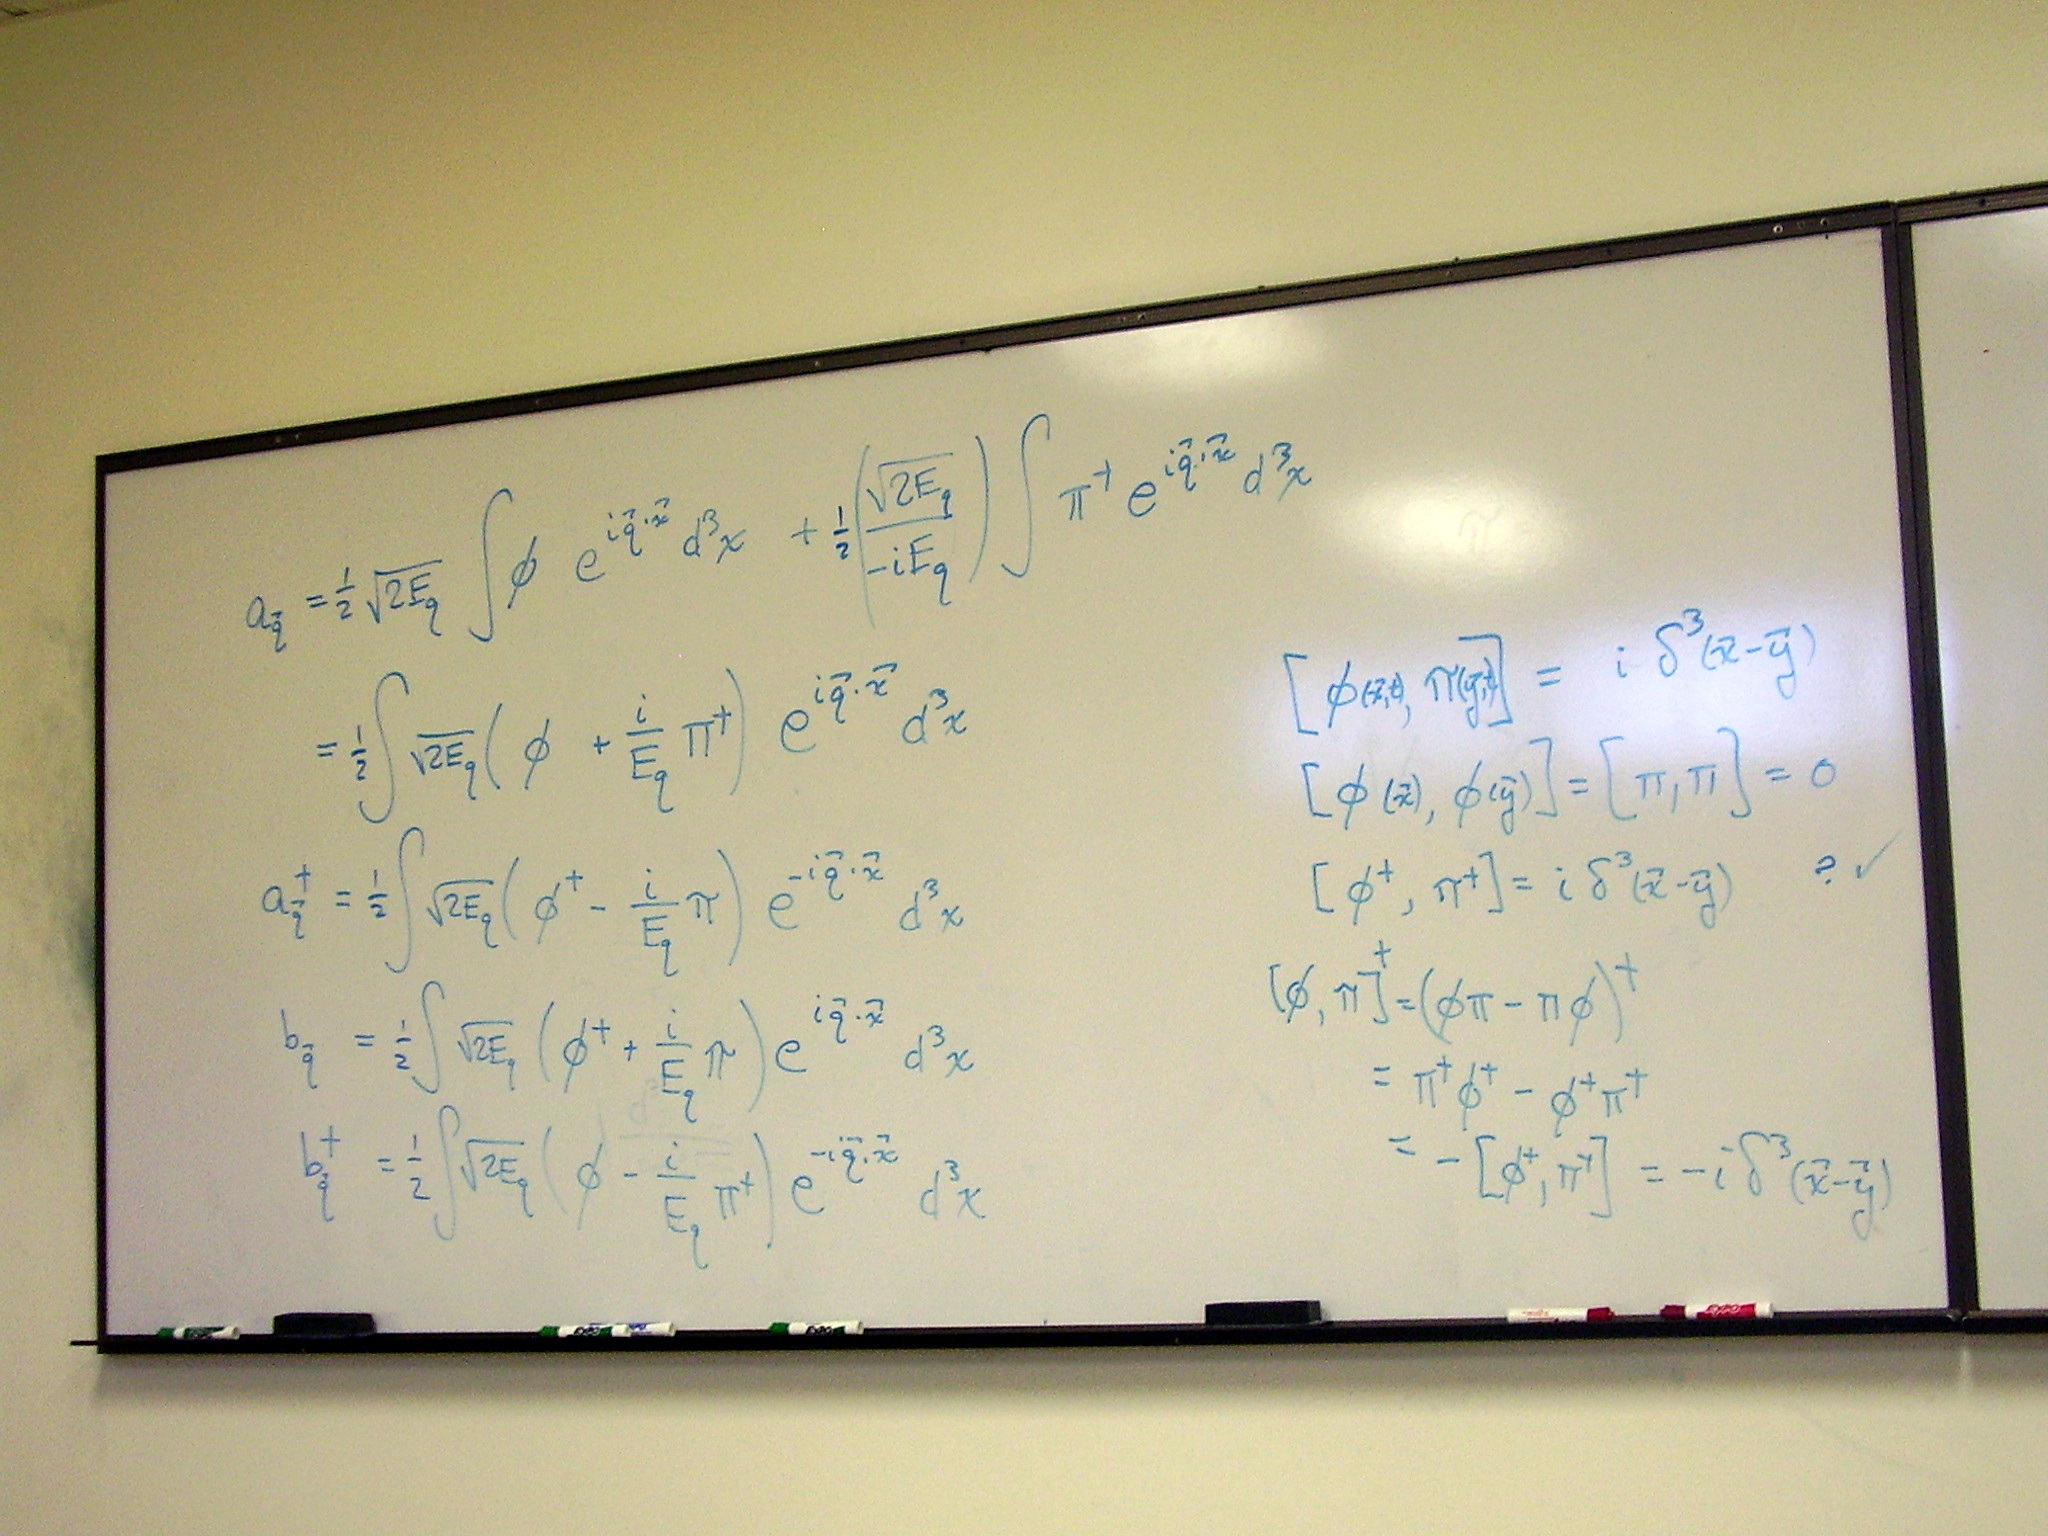 a_q⃗ = ½ √(2E_q) ∫ φ e^{i q⃗·x⃗} d³x + ½ (√(2E_q) / −iE_q) ∫ π† e^{i q⃗·x⃗} d³x
= ½ ∫ √(2E_q) ( φ + (i/E_q) π† ) e^{i q⃗·x⃗} d³x
a_q⃗† = ½ ∫ √(2E_q) ( φ† − (i/E_q) π ) e^{−i q⃗·x⃗} d³x
b_q⃗ = ½ ∫ √(2E_q) ( φ† + (i/E_q) π ) e^{i q⃗·x⃗} d³x
b_q⃗† = ½ ∫ √(2E_q) ( φ − (i/E_q) π† ) e^{−i q⃗·x⃗} d³x
[ φ(x⃗,t), π(y⃗,t) ] = i δ³(x⃗−y⃗)
[ φ(x⃗), φ(y⃗) ] = [ π, π ] = 0
[ φ†, π† ] = i δ³(x⃗−y⃗) ? ✓
[φ, π]† = (φπ − πφ)†
= π†φ† − φ†π†
= −[φ†, π†] = −i δ³(x⃗−y⃗)
EXPO